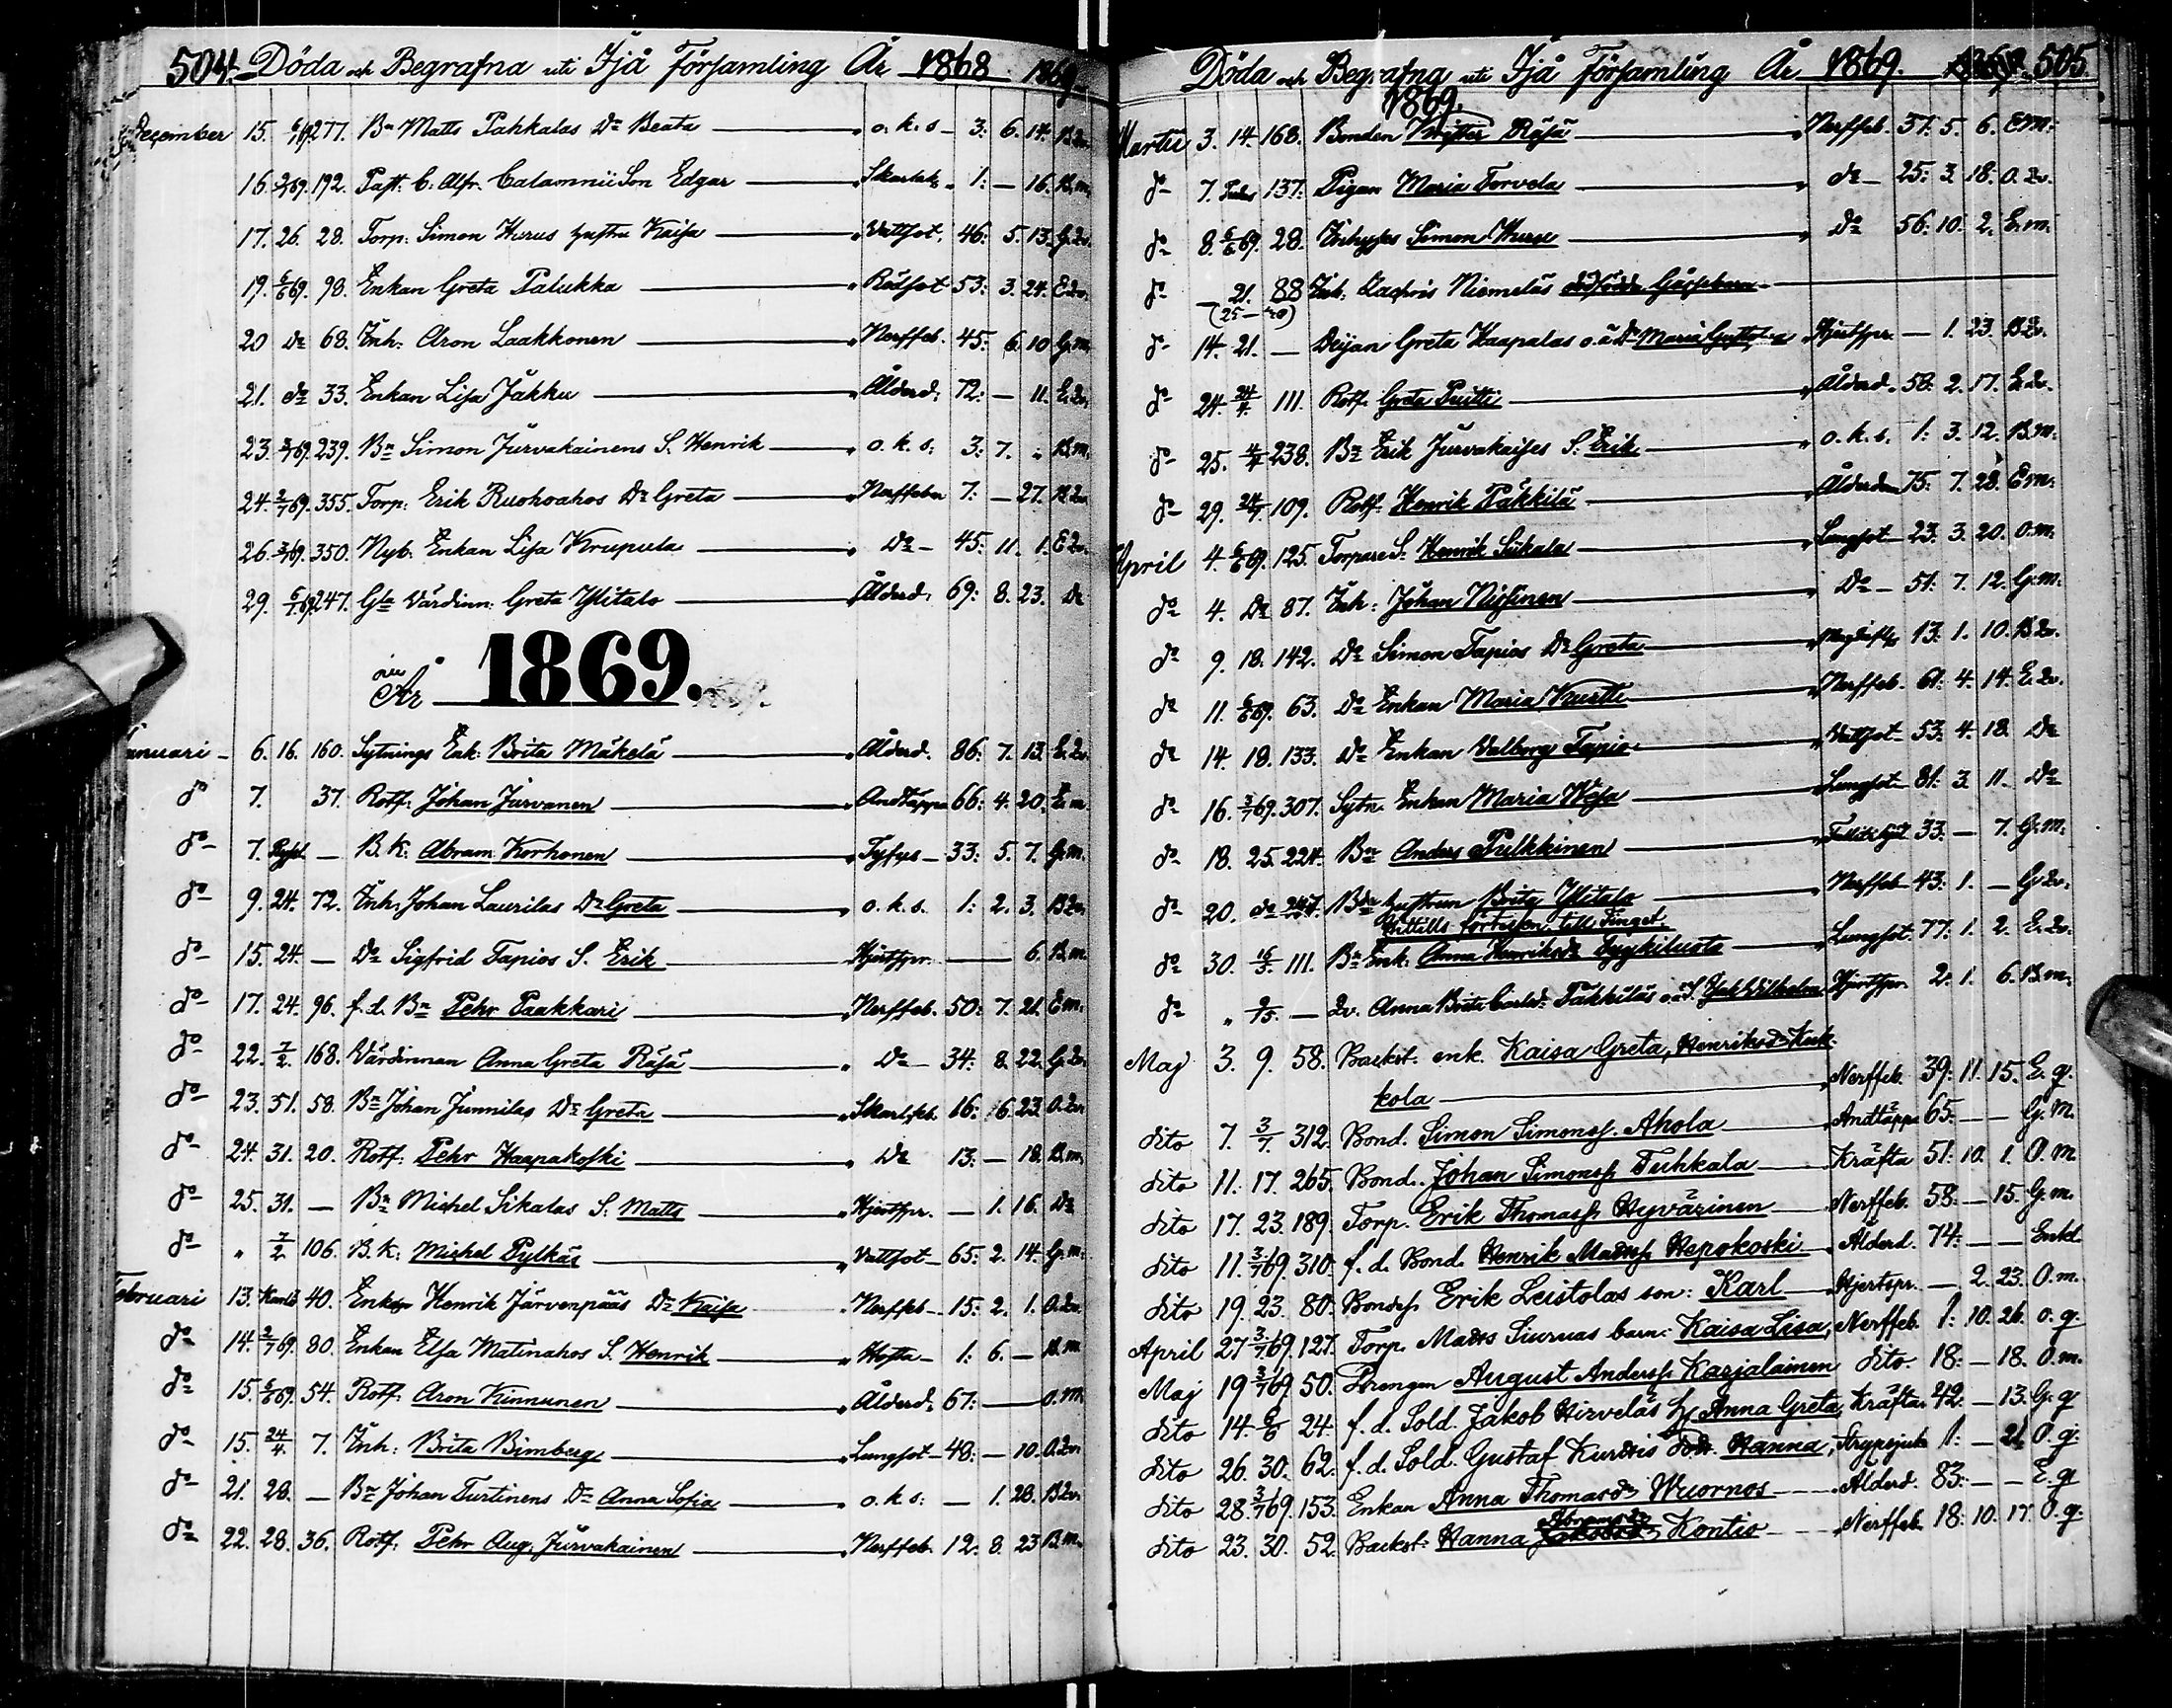 504. Döda och Begrafna uti Ijå Församling År 1868 1869
December 15. 277. Bn Matts Pahkalas Dr Beata o. k. s 3: 6. 14.
16. 2/69. 192. Past. C. Alfr. Calamnii Son Edgar 1: — 16. B.m.
17. 26. 28. Torp: Simon Hurus hustru Kaisa Vattsot. 46: 5. 13. G.Qv.
19. 6/6 69. 98. Enkan Greta Palukka Rödsot 53: 3. 24. E.Qv.
20 Do 68. Inh: Aron Laakkonen Nerffeb. 45: 6. 10 G.m.
21. do 33. Enkan Lisa Jakku Ålderd. 72: — 11. E.Qv.
23. 3/7 69. 239. Bn Simon Jurvakainens S. Henrik o. k. s. 3: 7. „ B.m.
24. 2/7 69. 355. Torp: Erik Ruohoahos Dr Greta Nerffeber 7: — 27. B.Qv.
26. 3/7 69. 350. Nyb. Enkan Lisa Krupula Do 45: 11. 1. E.Qv.
29. 247. Gla Värdinn: Greta Ylitalo Ålderd. 69: 8. 23. Do
År 1869.
Januari 6. 16. 160. Sytnings Enk: Brita Mäkelä Ålderd. 86: 7. 13. E.Qv.
do 7. 37. Rotf. Johan Jurvanen Andtäppa 66: 4. 20. E.m.
do 7. — B.k: Abram Korhonen Tyfus 33: 5. 7. G.m.
do 9. 24. 72. Inh. Johan Laurilas Dr Greta o. k. s. 1: 2. 3. B.Qv.
do 15. 24. — Do Sigfrid Tapios S. Erik Hjertspr. — 6. B.m.
do 17. 24. 96. f.d. Bn Pehr Paakkari Nerffeb. 50: 7. 21. E.m.
do 22. 7/2. 168. Värdinnan Anna Greta Räsä Do 34: 8. 22. G.Qv.
do 23. 31. 58. Bn Johan Junnilas Dr Greta Skarlfeb. 16: 6. 23. O.Qv.
do 24. 31. 20. Rotf: Pehr Haapakoski Do 13: — 18. B.m.
do 25. 31. — Bn Michel Sikalas S: Matts Hjertspr. — 1. 16. Do
do „ 7/2 106. B.k: Michel Pylkäs Vattsot 65: 2. 14. G.m.
Februari 13. 40. Enkans Henrik Järvenpääs Dr Kaisa Nerffeb. 15: 2. 1. O.Qv.
do 14. 2/7 69. 80. Enkan Elsa Matinahos S. Henrik Hosta 1: 6. — B.m.
do 15. 6/6 69. 54. Rotf. Aron Kinnunen Ålderd. 67: — O.m.
do 15. 24/4. 7. Inh: Brita Bimberg Lungsot 48: — 10. O.Qv.
do 21. 28. — Bn Johan Turtinens Dr Anna Sofia o. k. s: — 1. 28. B.Qv.
do 22. 28. 36. Rotf. Pehr Aug. Jurvakainen Nerffeb. 12. 8. 23 B.m.
Döda och Begrafna uti Ijå Församling År 1869. 505.
1869.
Martii 3. 14. 168. Bonden Räsä Nerffeb. 37. 5. 6. E.m.
do 7. 137. Pigan Maria Torvela do 25: 3. 18. O.Qv.
do 8. 6/6 69. 28. Inhyses Simon Huru Do 56. 10. 2. E.m.
do 21. 88 Inh: Zachris Niemeläs dödfödde Gossebarn
(25 — )
do 14. 21. — Deijan Greta Haapalas o.ä. Dr Maria Hjertspr. — 1. 23. B.Qv.
do 24. 24/4. 111. Rotf. Greta Ålderd. 58. 2. 17. E.Qv.
do 25. 4/4 238. Bn Erik Jurvakaises S. Erik o. k. s. 1: 3. 12. B.m.
do 29. 24/4. 109. Rotf: Henrik Päkkilä Ålderdom 75: 7. 28. E.m.
April 4. 6/6 69. 125. Torpare S. Henrik Siikala Lungsot 23. 3. 20. O.m.
do 4. Do 87. Inh: Johan Nissinen Do 51. 7. 12. G.m.
do 9. 18. 142. Do Simon Tapios Dr Greta 13: 1. 10. B.Qv.
do 11. 6/6 69. 63. Do Enkan Maria Kurtti Nerffeb. 61: 4. 14. E.Qv.
do 14. 18. 133. Do Enkan Valborg Tapio Vattsot 53. 4. 18. Do
do 16. 3/7 69. 307. Sytn. Enkan Maria Wesa Lungsot 81: 3. 11. Do
do 18. 25. 224. Bn Anders Pulkkinen 33. — 7. G.m.
do 20. do 247. Bde hustrun Brita Ylitalo Nerffeb. 43: 1. — G.Qv.
Hittills förteckn. till Tinget.
do 30. 16/5. 111. Bn Enk. Anna Henriksdr Lungsot. 77. 1. 2. E.Qv.
do „ 2/5. — Qv. Anna Brita Carlsdr Päkkiläs o.ä. S. Joh Wilhelm Hjertspr. 2. 1. 6. B.m.
Maj 3. 9. 58. Backst. enk. Kaisa Greta, Henriksdr Kuk-
kola Nerffeb. 39: 11. 15. E. q.
dito 7. 3/7 312. Bond. Simon Simonss. Ahola Andtäppa 65: — — G. m.
dito 11. 17. 265. Bond. Johan Simonss. Tuhkala Kräfta 51: 10. 1. O. m
dito 17. 23. 189. Torp. Erik Thomass. Hyvärinen Nerffeb. 58. — 15. G. m.
dito 11. 3/7 69. 310. f. d. Bond. Henrik Madss. Hepokoski Ålderd. 74: — — Enkl.
dito 19. 23. 80. Bondes. Erik Leistolas son: Karl Hjertspr. — 2. 23. O. m.
April 27 3/7 69. 127. Torp. Madts Siuruas barn: Kaisa Lisa, Nerffeb. 1: 10. 26. o. q.
Maj 19 3/7 69. 50. Drengen August Anderss. Karjalainen dito. 18: — 18. O. m.
dito 14. 6/6 24. f. d. Sold. Jakob Hirveläs h. Anna Greta, Kräfta 42. — 13. G. q
dito 26. 30. 62. f. d. Sold. Gustaf Kurttis dotr. Hanna, Strypsjuk 1: — 21. O. q.
dito 28. 3/7 69. 153. Enkan Anna Thomasdr Wuornos Ålderd. 83: — — E. q
dito 23. 30. 52. Backst: Hanna Abramsdr Kontio Nerffeb. 18: 10. 17. O. q.